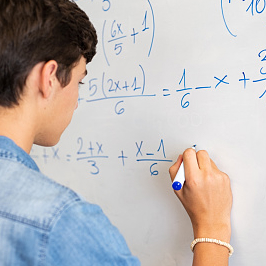 10
(6x/5 + 1
5(2x+1)/6 = 1/6 - x +
+ x = 2+x/3 + x-1/6